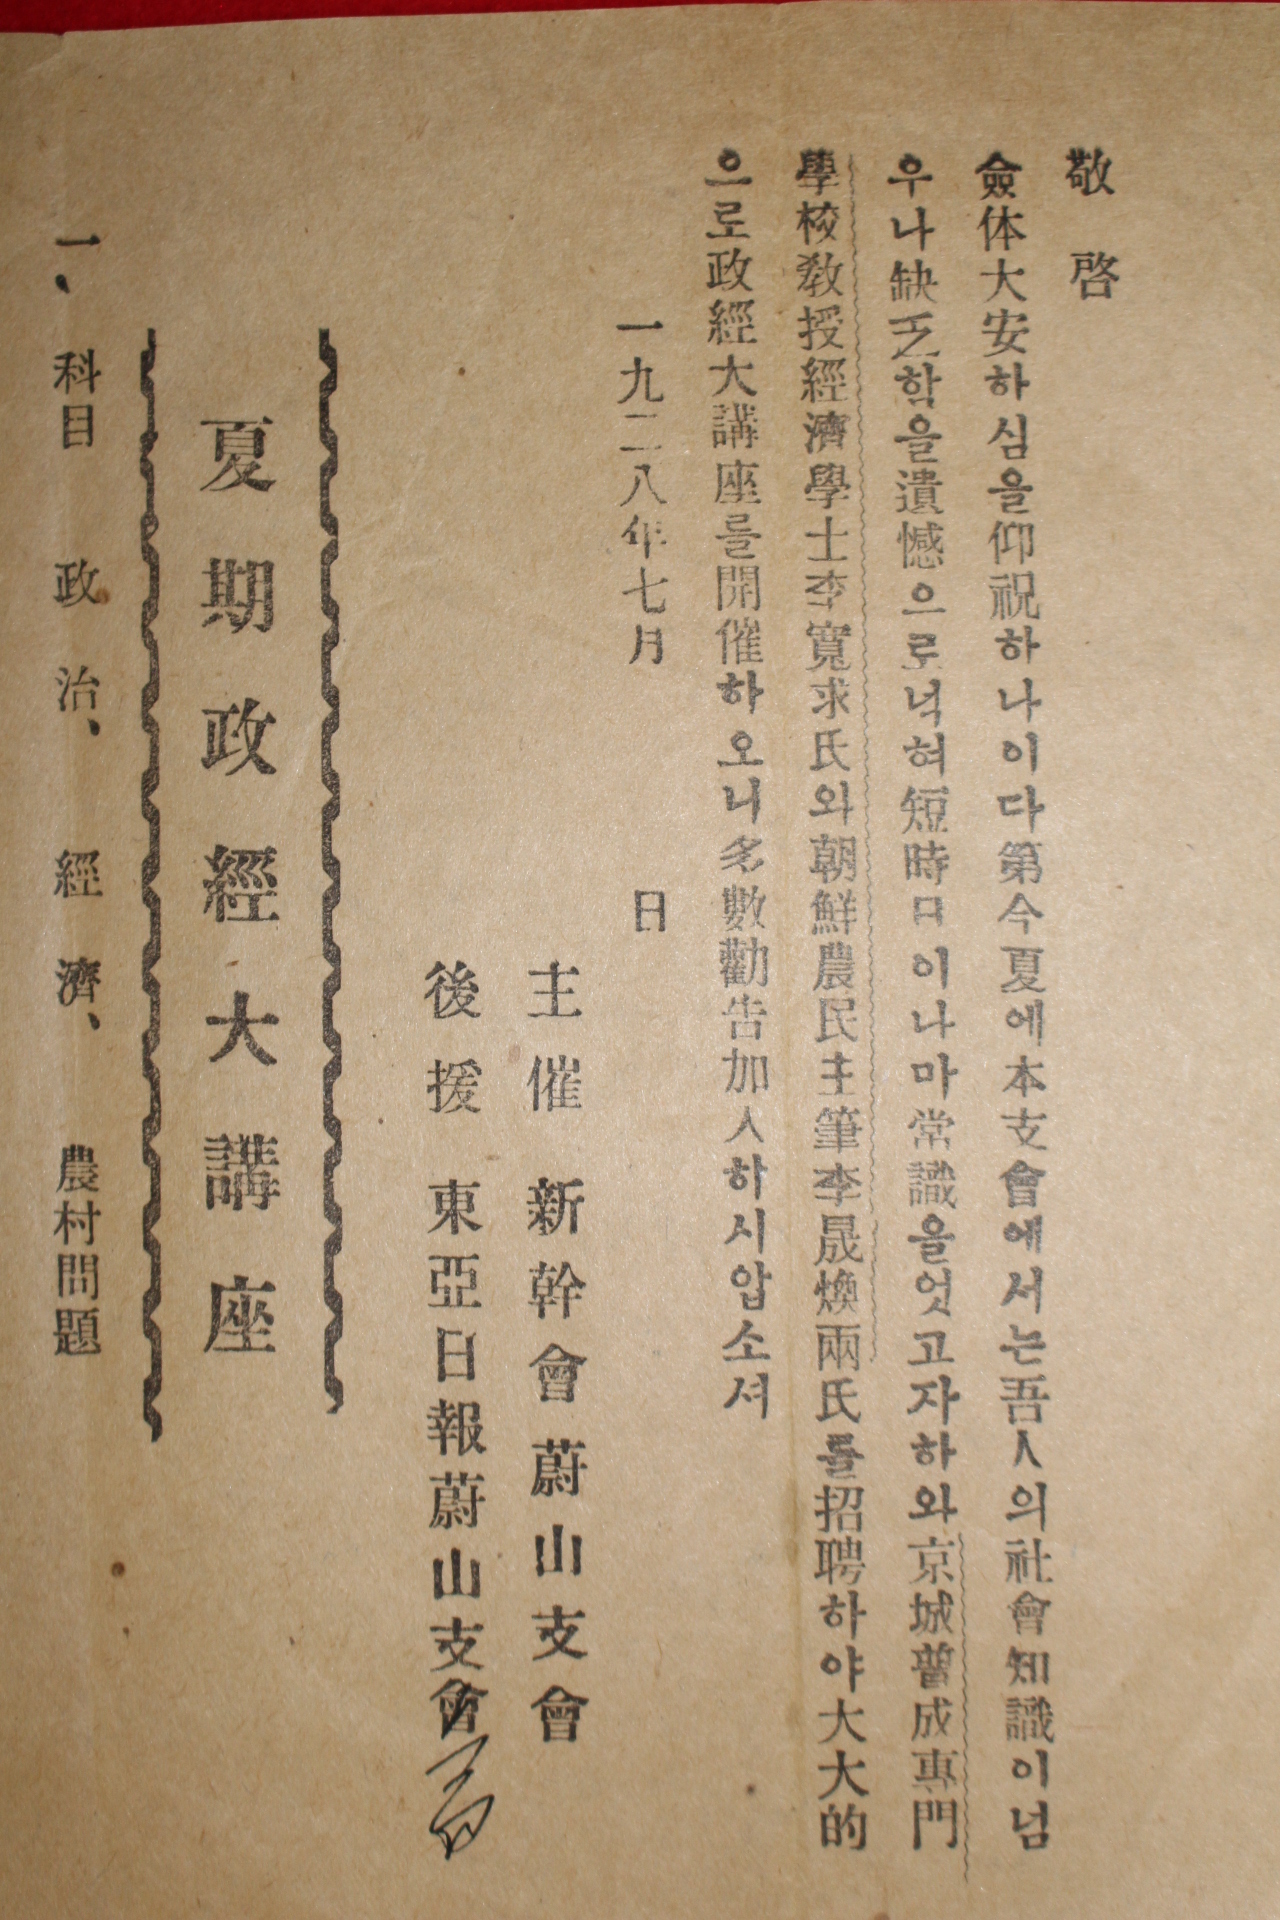 敬啓
僉体大安하심을仰祝하나이다第今夏에本支會에서는吾人의社會知識이넘
우나缺乏함을遺憾으로녁혀短時日이나마常識을엇고자하와京城普成專門
學校敎授經濟學士李寬求氏와朝鮮農民主筆李晟煥兩氏를招聘하야大大的
으로政經大講座를開催하오니多數勸告加人하시압소셔
一九二八年七月 日
主催 新幹會蔚山支會
後援 東亞日報蔚山支會
夏期政經大講座
一、科目 政治、經濟、農村問題